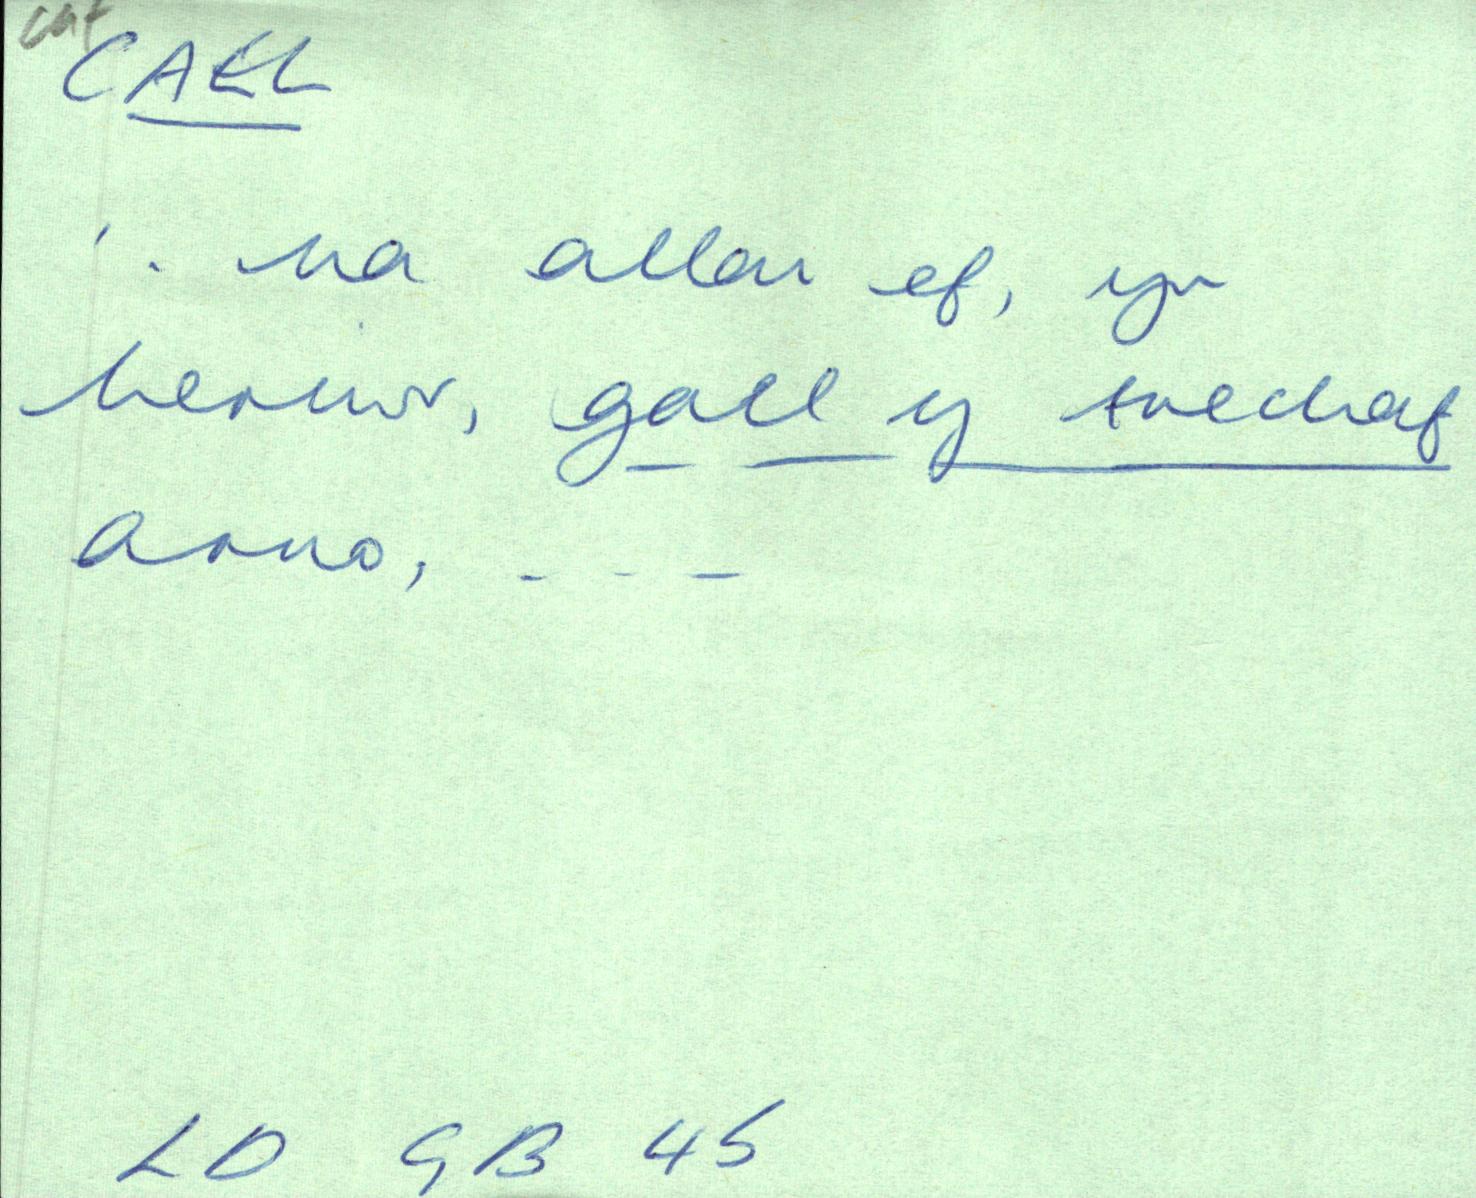 caf
CAEL
'. na allai ef, yn
henwr, gael y trechaf
arno, . - -
LD GB 45